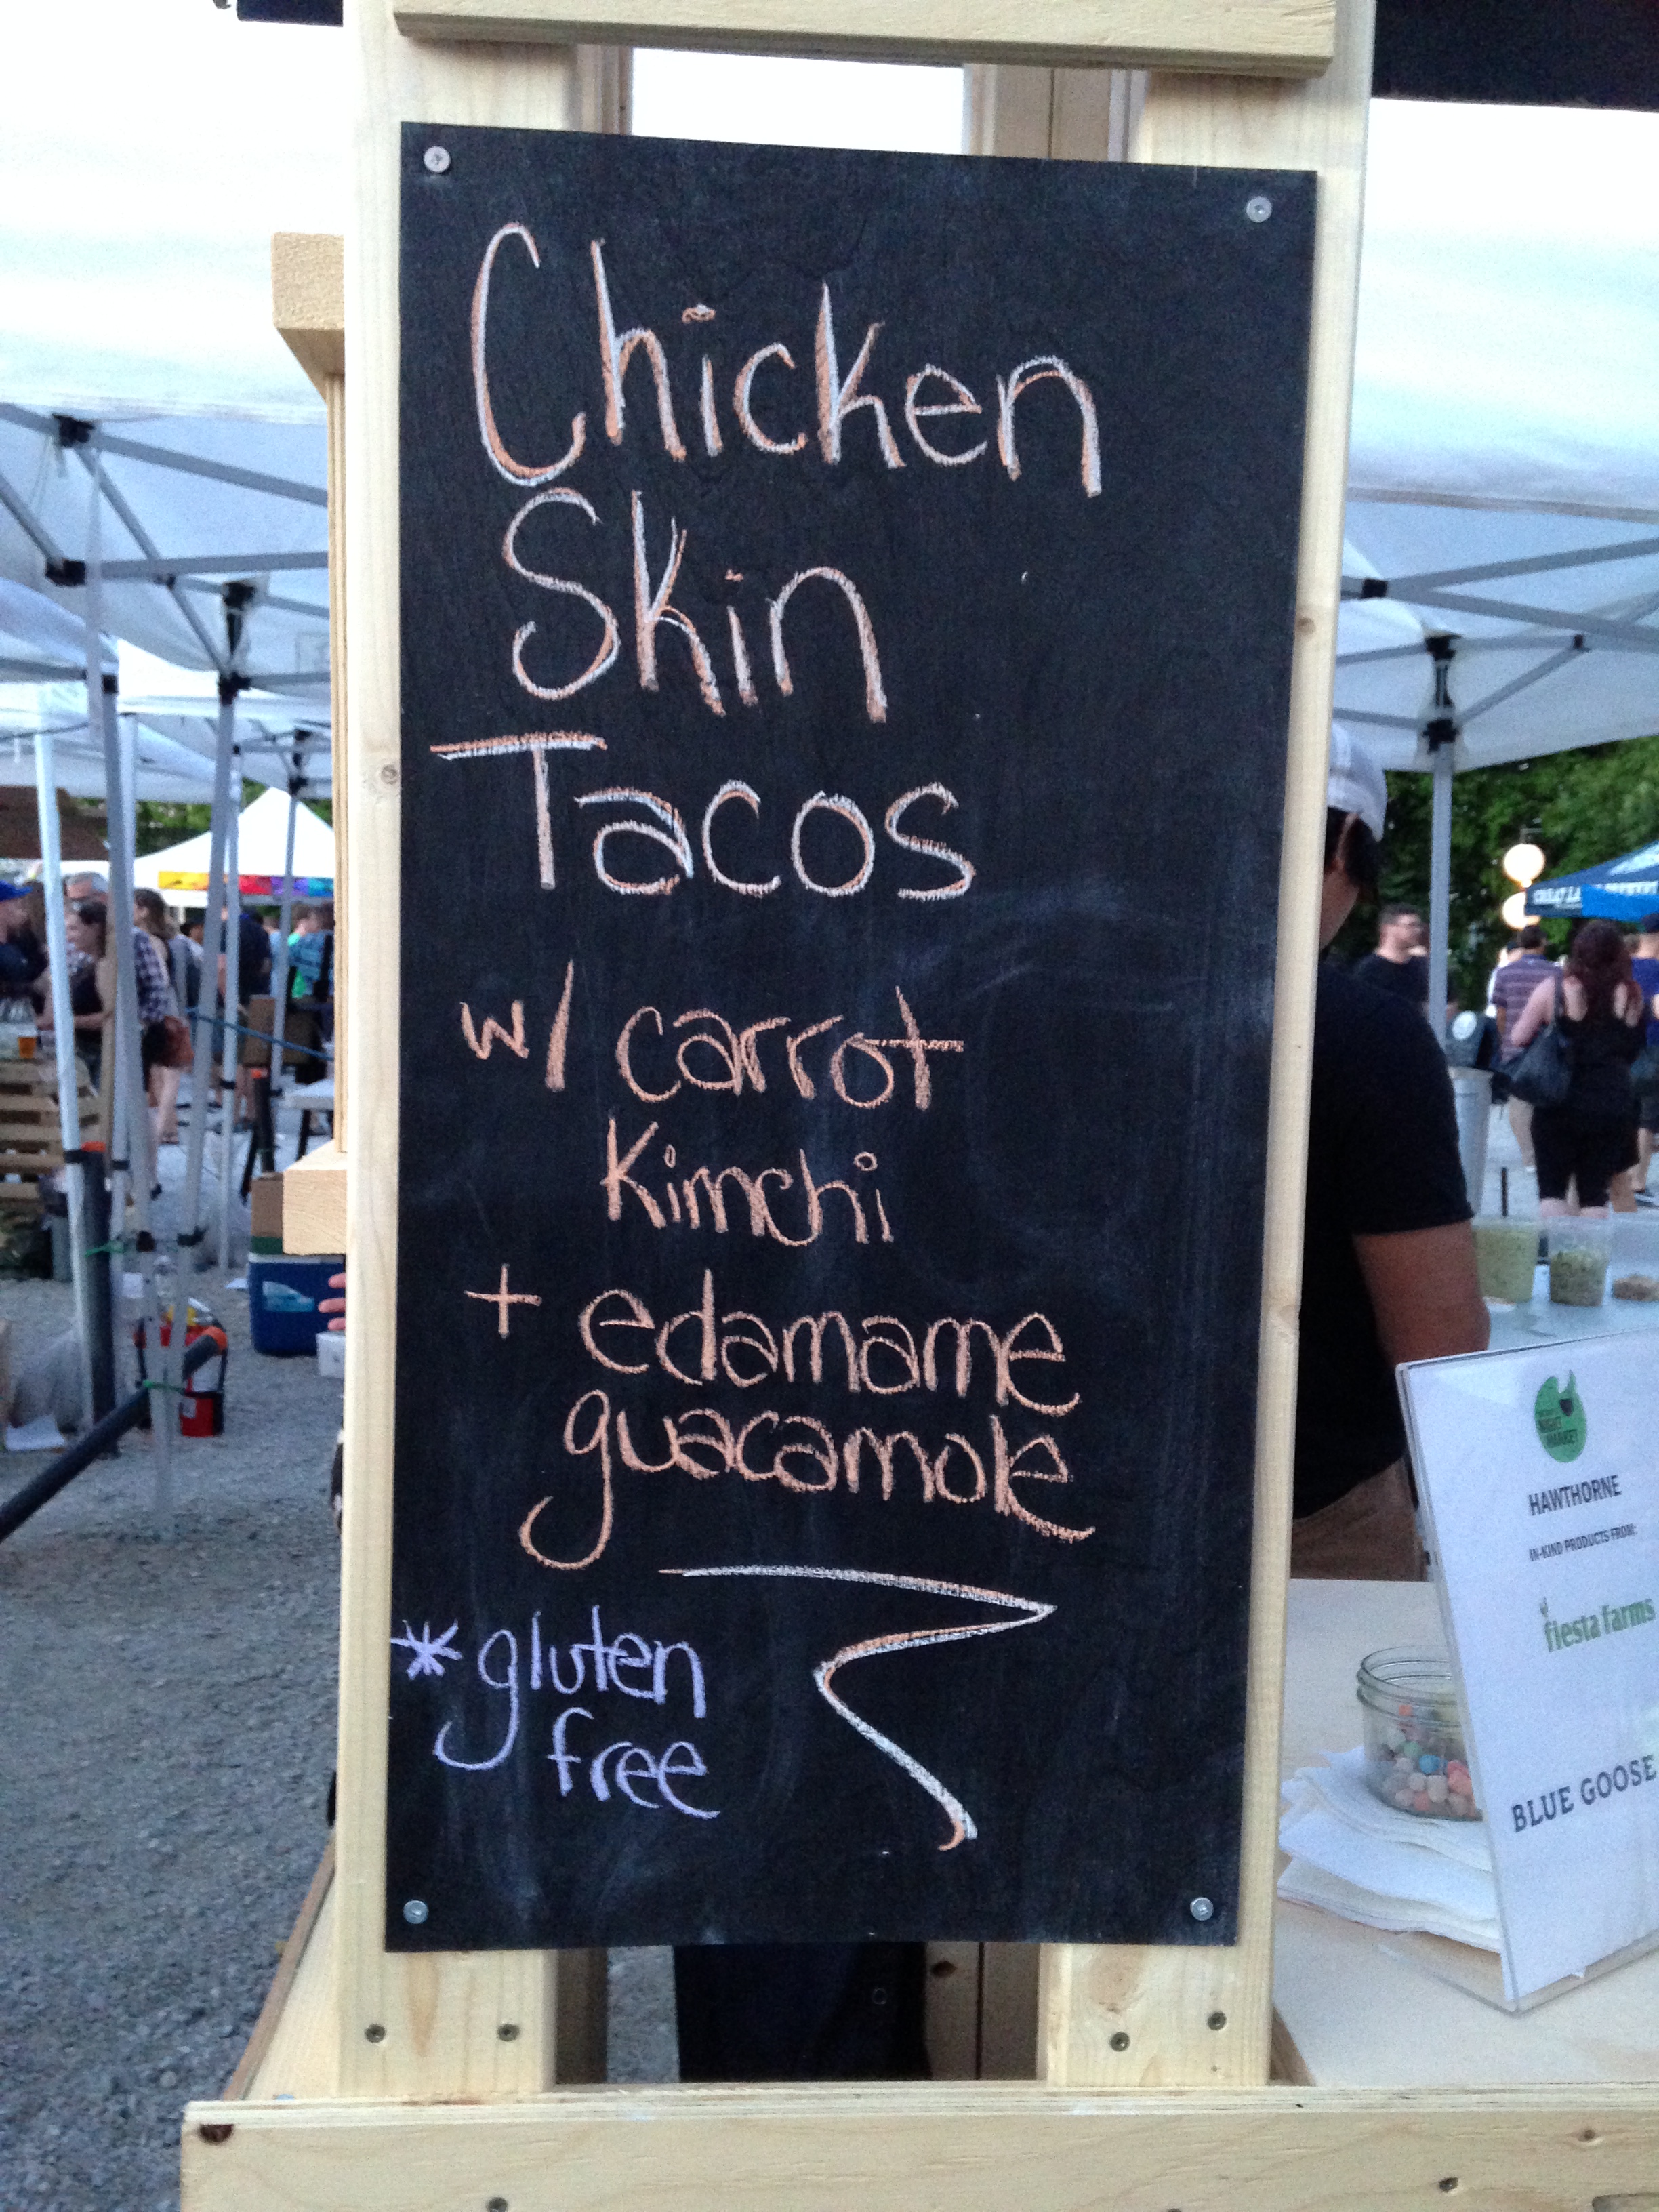 Chicken
Skin
Tacos
w/ carrot
Kimchi
+ edamame
guacamole
*gluten
free
NIGHT
MARKET
HAWTHORNE
IN-KIND PRODUCTS FROM:
fiesta farms
BLUE GOOSE
GREAT LA